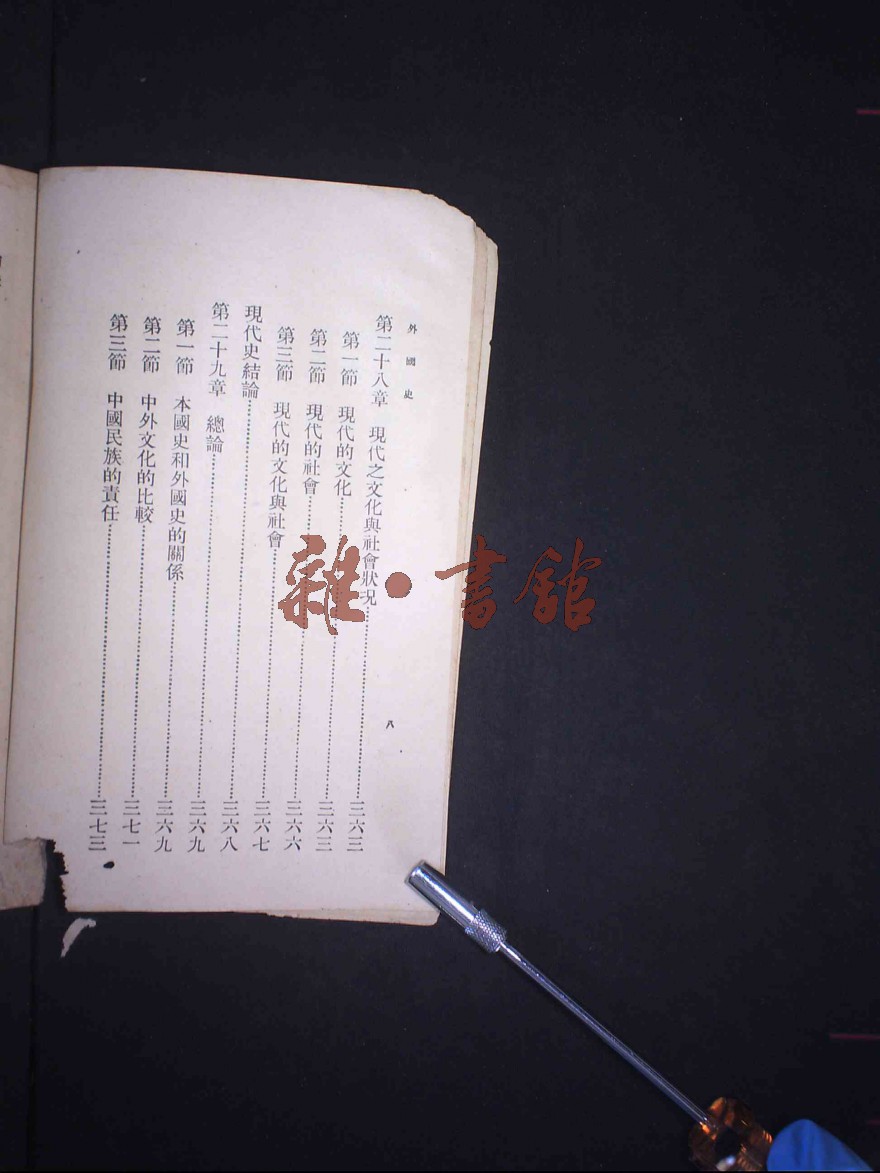 外國史
八
第二十八章　現代之文化與社會狀況……三六三
第一節　現代的文化……三六三
第二節　現代的社會……三六六
第三節　現代的文化與社會……三六七
現代史結論……三六八
第二十九章　總論……三六九
第一節　本國史和外國史的關係……三六九
第二節　中外文化的比較……三七一
第三節　中國民族的責任……三七三
雜·書館